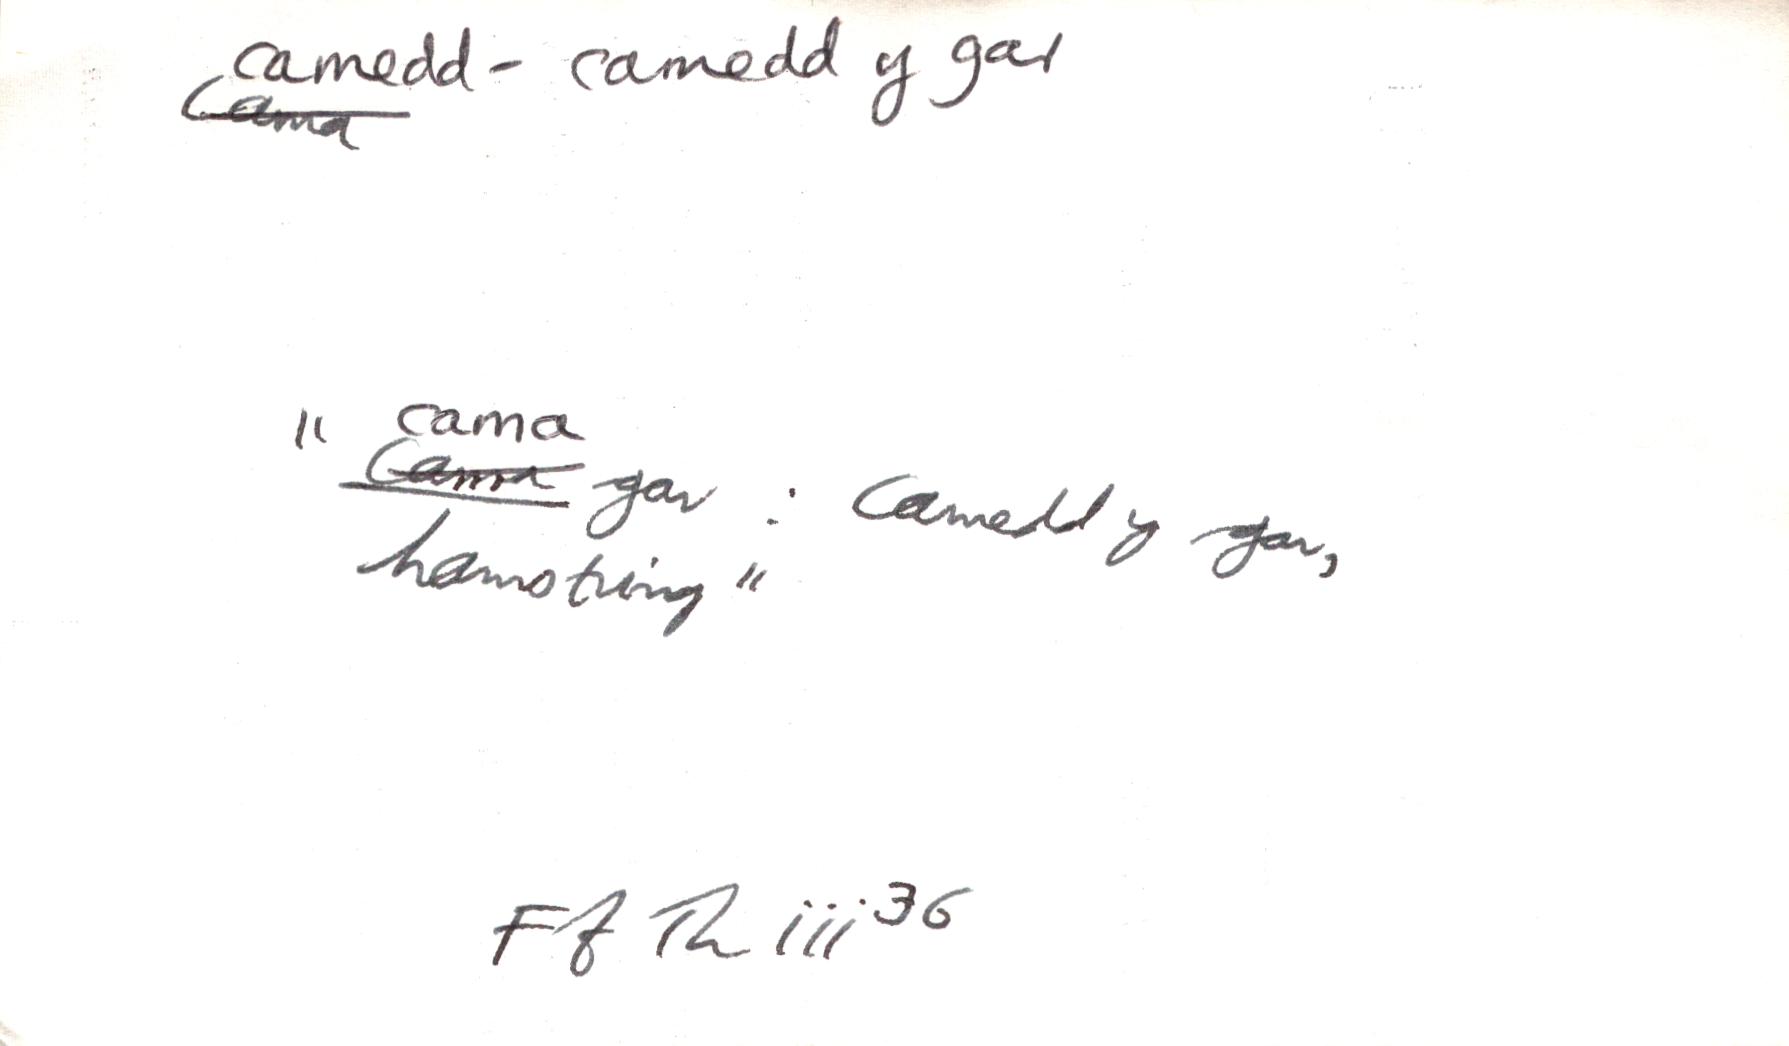 camedd - camedd y gar
Cama
" cama
Cama gar : Camedd y gar,
hamstring "
Ff Th iii 36